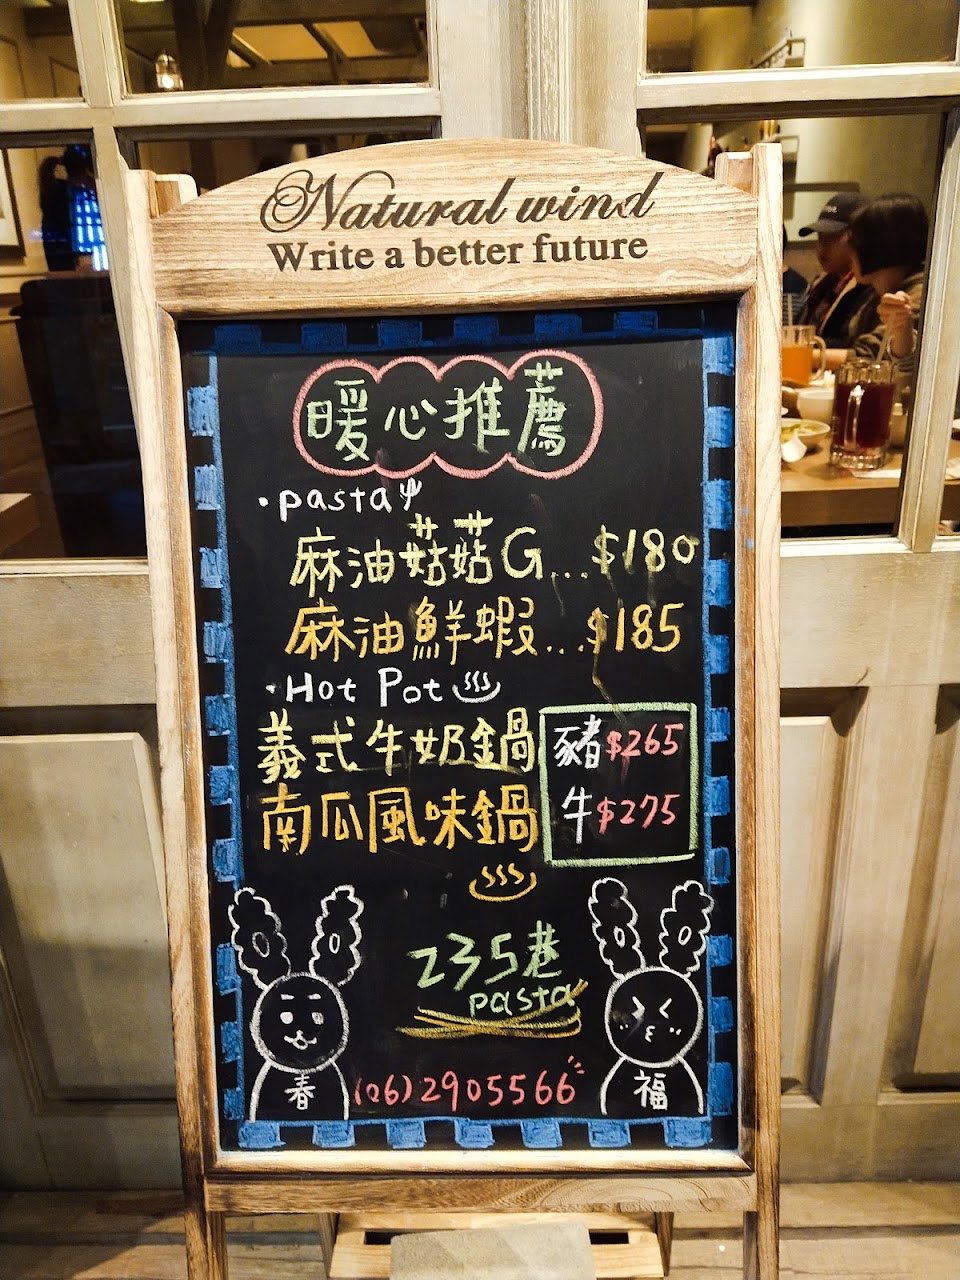 Natural wind
Write a better future
暖心推薦
·pasta
麻油菇菇G...$180
麻油鮮蝦...$185
·Hot Pot
義式牛奶鍋
豬$265
南瓜風味鍋
牛$275
235巷
pasta
春
(06)2905566
福